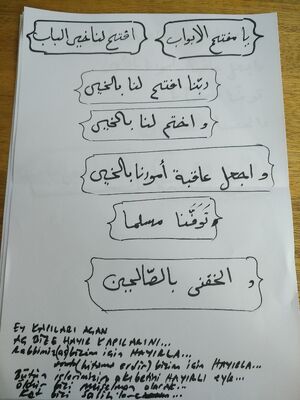 يا مفتح الابواب افتح لنا خير الباب
ربّنا افتح لنا بالخير
و اختم لنا بالخير
و اجعل عاقبة أمورنا بالخير
تَوَفَّنا مسلما
و الحقنى بالصّالحين
EY KAPILARI AÇAN
AÇ BİZE HAYIR KAPILARINI...
Rabbimiz aç bizim için HAYIRLA...
(hitama erdir) bizim için HAYIRLA...
Bütün işlerimizin akıbetini HAYIRLI eyle...
öldür bizi müslüman olarak...
kat bizi salih